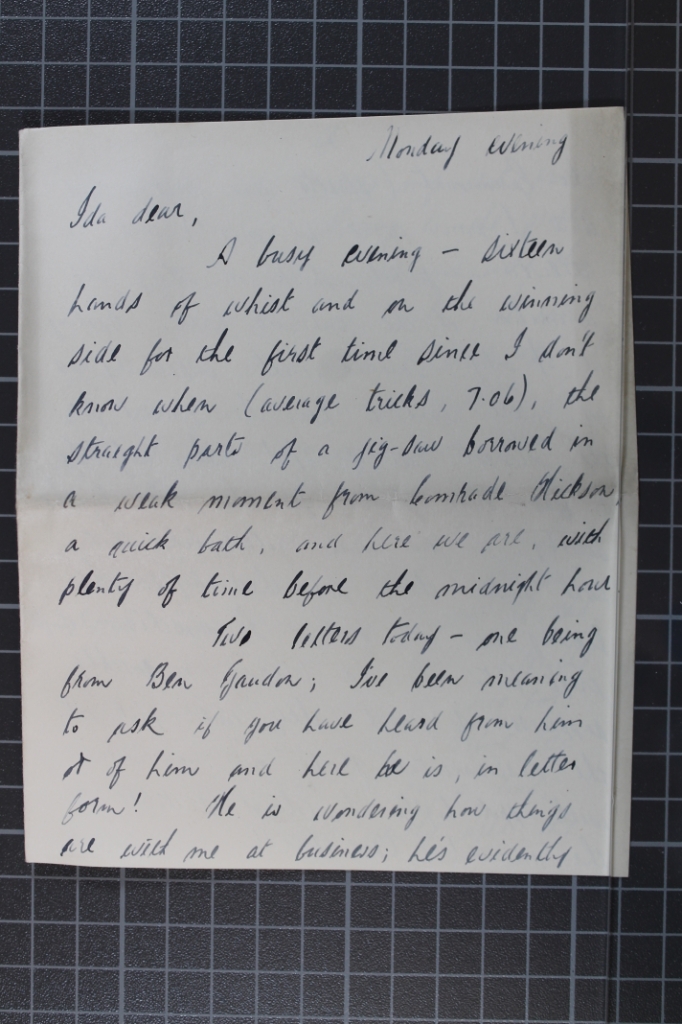 Monday evening
Ida dear,
A busy evening — sixteen
hands of whist and on the winning
side for the first time since I don't
know when (average tricks, 7.06), the
straight parts of a jig-saw borrowed in
a weak moment from Comrade Hickson,
a quick bath, and here we are, with
plenty of time before the midnight hour
Two letters today — one being
from Ben Gaudon; I've been meaning
to ask if you have heard from him
or of him and here he is, in letter
form! He is wondering how things
are with me at business; he's evidently